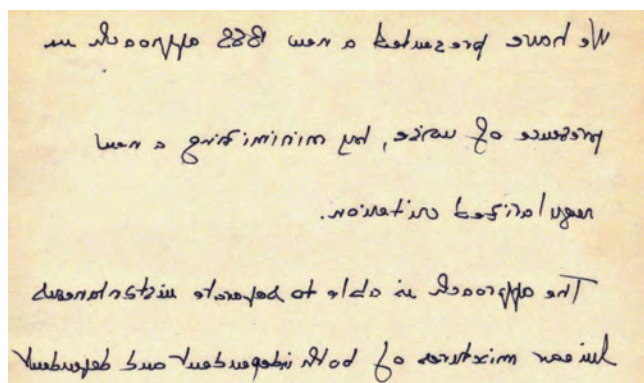 We have presented a new BSS approach in
presence of noise, by minimizing a new
regularized criterion.
The approach is able to separate instantaneous
linear mixtures of both independent and dependent